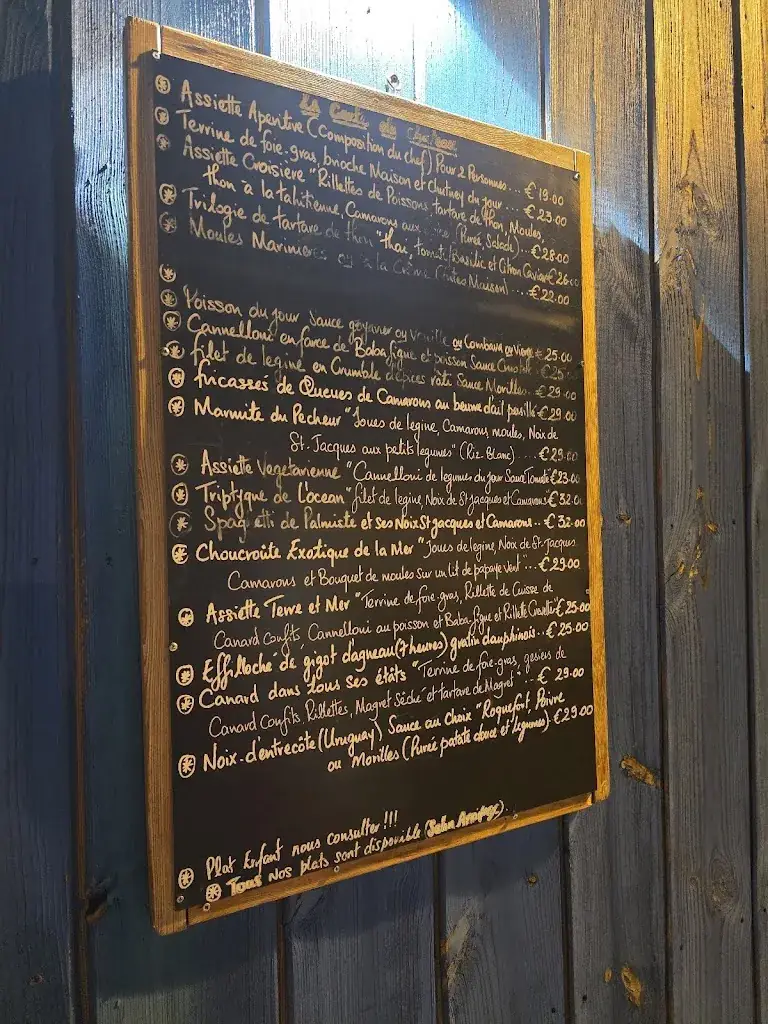 La Carte du
Assiette Aperitive (Composition du chef) Pour 2 Personnes ... € 19.00
Terrine de foie-gras, brioche Maison et chutney du jour ... € 23.00
Assiette Croisiere "Rillettes de Poissons, tartare de thon, Moules
thon à la tahitienne, Camarons aux (Purée, Salade) ... € 28.00
Trilogie de tartare de thon "thai, tomate/Basilic et Citron Caviar € 26.00
Moules Marinieres ou à la Crème (frites Maison) ... € 22.00
Poisson du jour Sauce goyavier ou Vanille ou Combava ou Vierge € 25.00
Cannelloni en farce de Baba figue et poisson Sauce € 25
filet de legine en Crumble d'épices rôti Sauce Morilles € 29.00
fricasses de Queues de Camarons au beurre d'ail persillé € 29.00
Marmite du Pecheur "Joues de legine, Camarons, moules, Noix de
St. Jacques aux petits legumes" (Riz-Blanc) .... € 29.00
Assiette Vegetarienne "Cannelloni de legumes du jour Sauce Tomate € 23.00
Triptyque de L'ocean "filet de legine, Noix de St Jacques et Camarons € 32.0
Spaghetti de Palmiste et ses Noix St Jacques et Camarons .. € 32.00
Choucroute Exotique de la Mer "Joues de legine, Noix de St-Jacques
Camarons et Bouquet de moules sur un lit de papaye vert" ... € 29.00
Assiette Terre et Mer "Terrine de foie-gras, Rillette de Cuisse de
Canard Confits, Cannelloni au poisson et Baba-figue et Rillette € 25.00
Effiloché de gigot d'agneau (7 heures) gratin dauphinois .. € 25.00
Canard dans tous ses états "Terrine de foie-gras, gesiers de
Canard Confits, Rillettes, Magret Séché et tartare de Magret" .. € 29.00
Noix-d'entrecôte (Uruguay) Sauce au choix "Roquefort, Poivre
ou Morilles (Purée patate douce et légumes). € 29.00
Plat Enfant nous consulter !!!
Tous Nos plats sont disponible (Selon Arrivage).